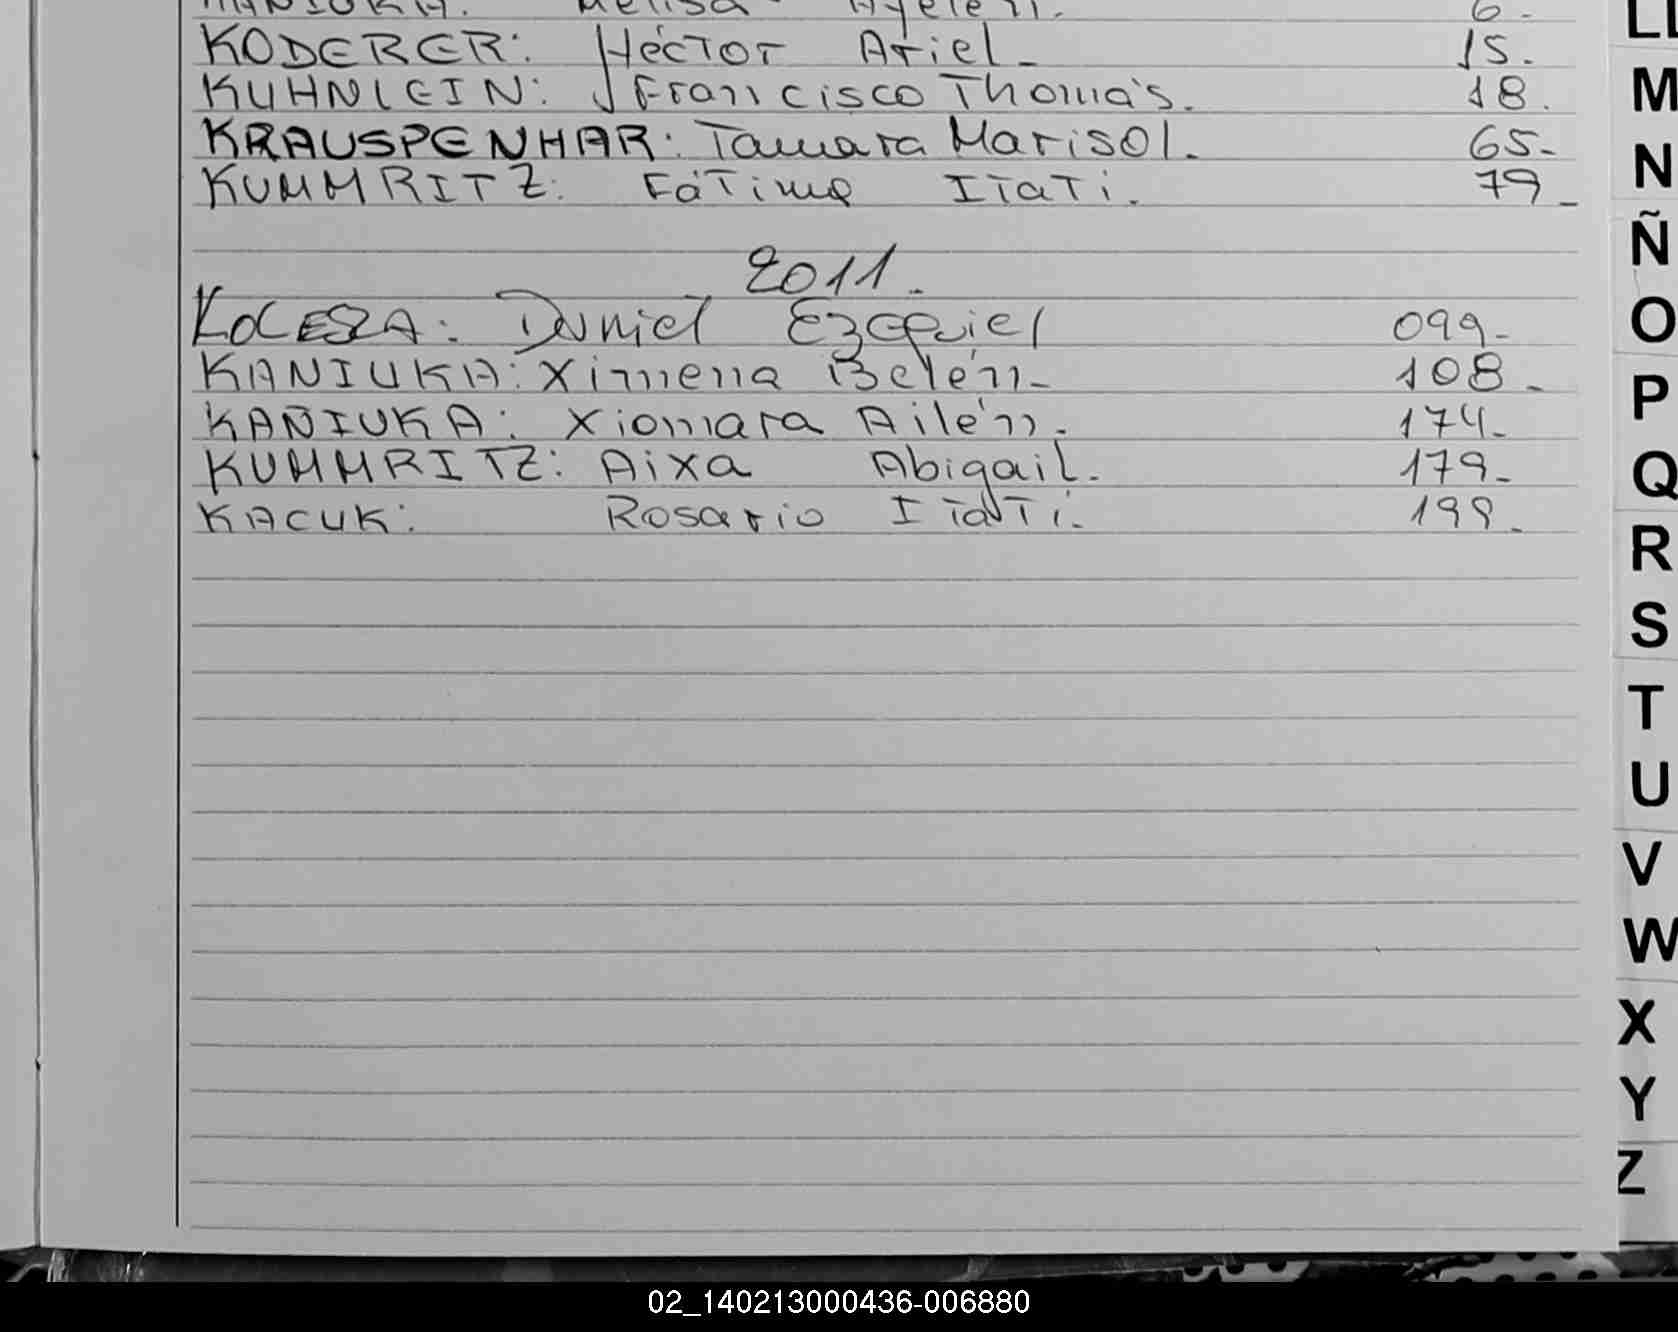 KANIUKA: Melisa Ayelén. 6-
KODERER: Héctor Ariel- 15.
KUHNLEIN: Francisco Thomás. 18.
KRAUSPENHAR: Tamara Marisol. 65-
KUMMRITZ: Fátima Itatí. 79-
2011.
KOLESZA: Daniel Ezequiel 099-
KANIUKA: Ximena Belén- 108-
KAÑIUKA: Xiomara Ailén. 174-
KUMMRITZ: Aixa Abigail. 179-
KACUK: Rosario Itatí. 199.
LL
M
N
Ñ
O
P
Q
R
S
T
U
V
W
X
Y
Z
02_140213000436-006880